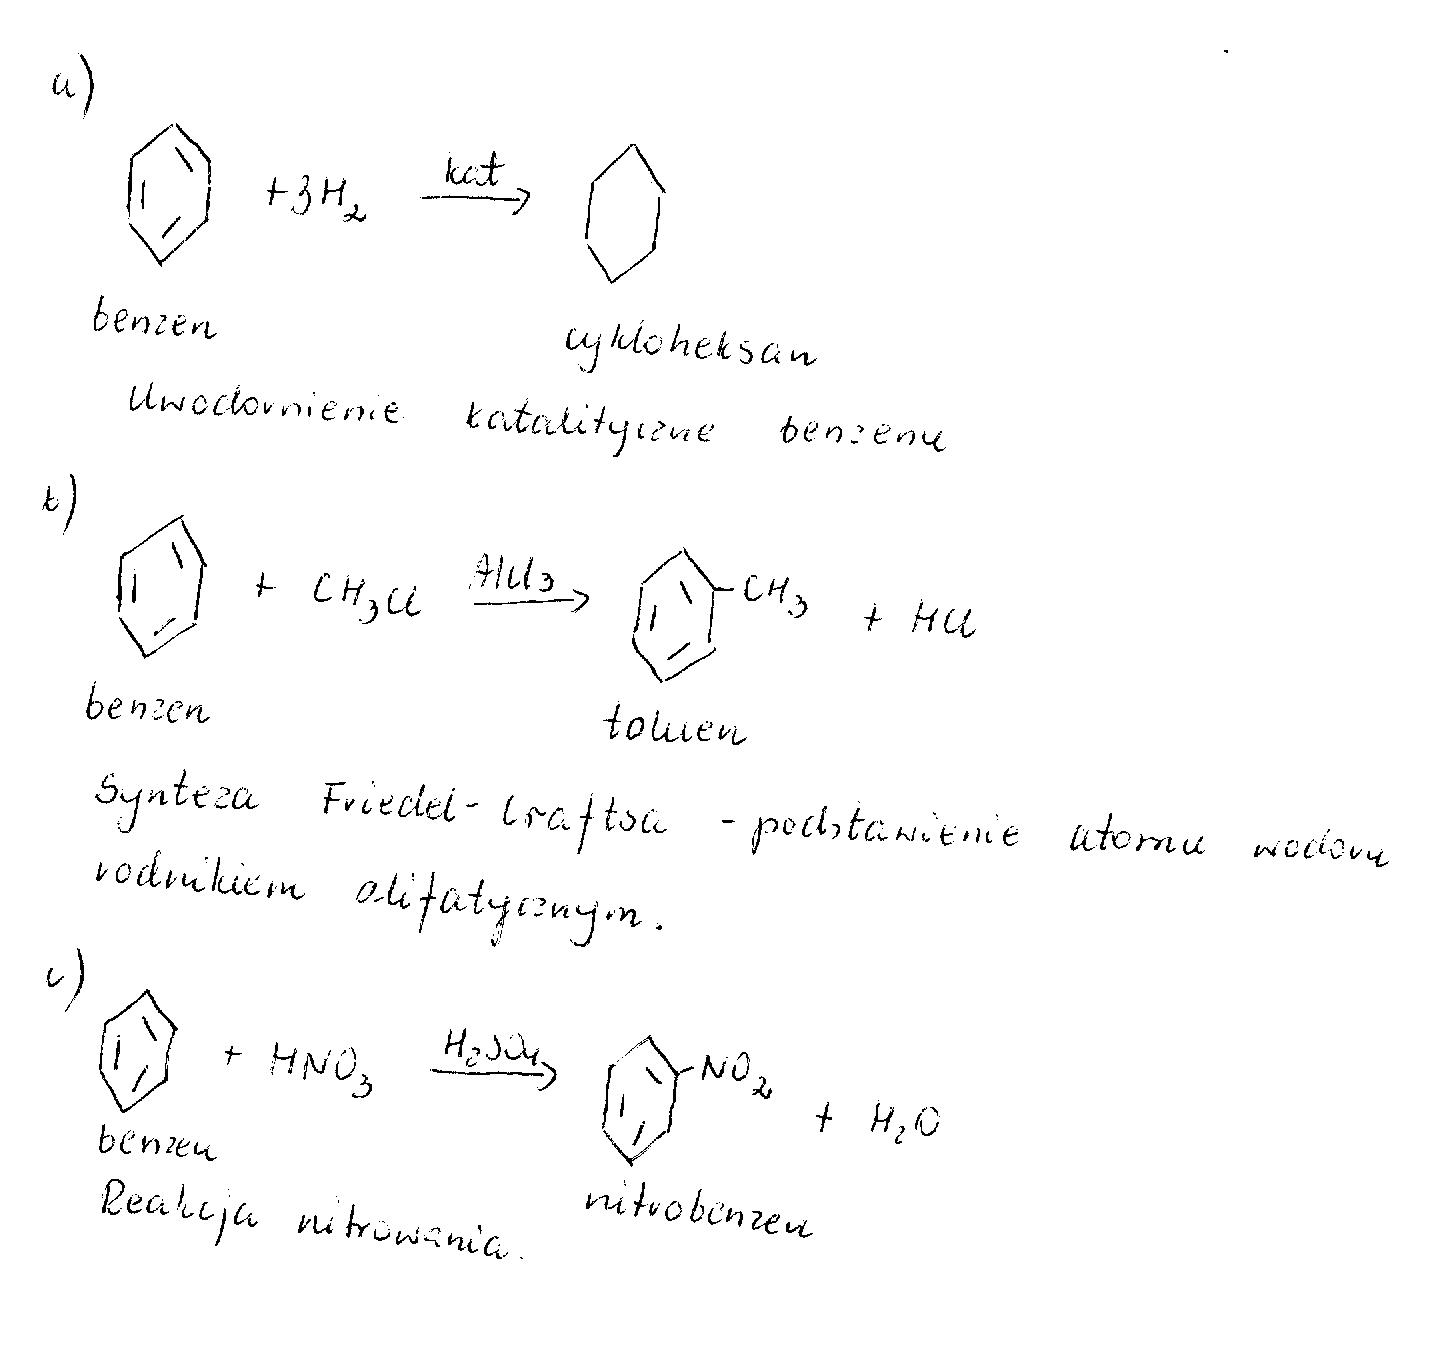 a)
+3H₂ kat
benzen cykloheksan
Uwodornienie katalityczne benzenu
b)
+ CH₃Cl AlCl₃ CH₃ + HCl
benzen toluen
Synteza Friedel-Craftsa - podstawienie atomu wodoru
rodnikiem alifatycznym.
c)
+ HNO₃ H₂SO₄ NO₂ + H₂O
benzen nitrobenzen
Reakcja nitrowania.